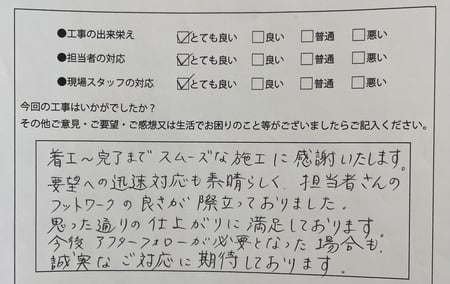 ●工事の出来栄え ☑とても良い □良い □普通 □悪い
●担当者の対応 ☑とても良い □良い □普通 □悪い
●現場スタッフの対応 ☑とても良い □良い □普通 □悪い
今回の工事はいかがでしたか？
その他ご意見・ご要望・ご感想又は生活でお困りのこと等がございましたらご記入ください。
着工～完了までスムーズな施工に感謝いたします。
要望への迅速対応も素晴らしく、担当者さんの
フットワークの良さが際立っておりました。
思った通りの仕上がりに満足しております。
今後アフターフォローが必要となった場合も、
誠実なご対応に期待しております。